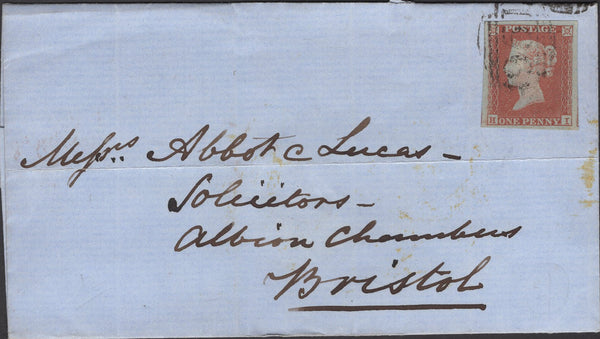 POSTAGE
H ONE PENNY I
Messrs Abbot & Lucas –
Solicitors –
Albion Chambers
Bristol